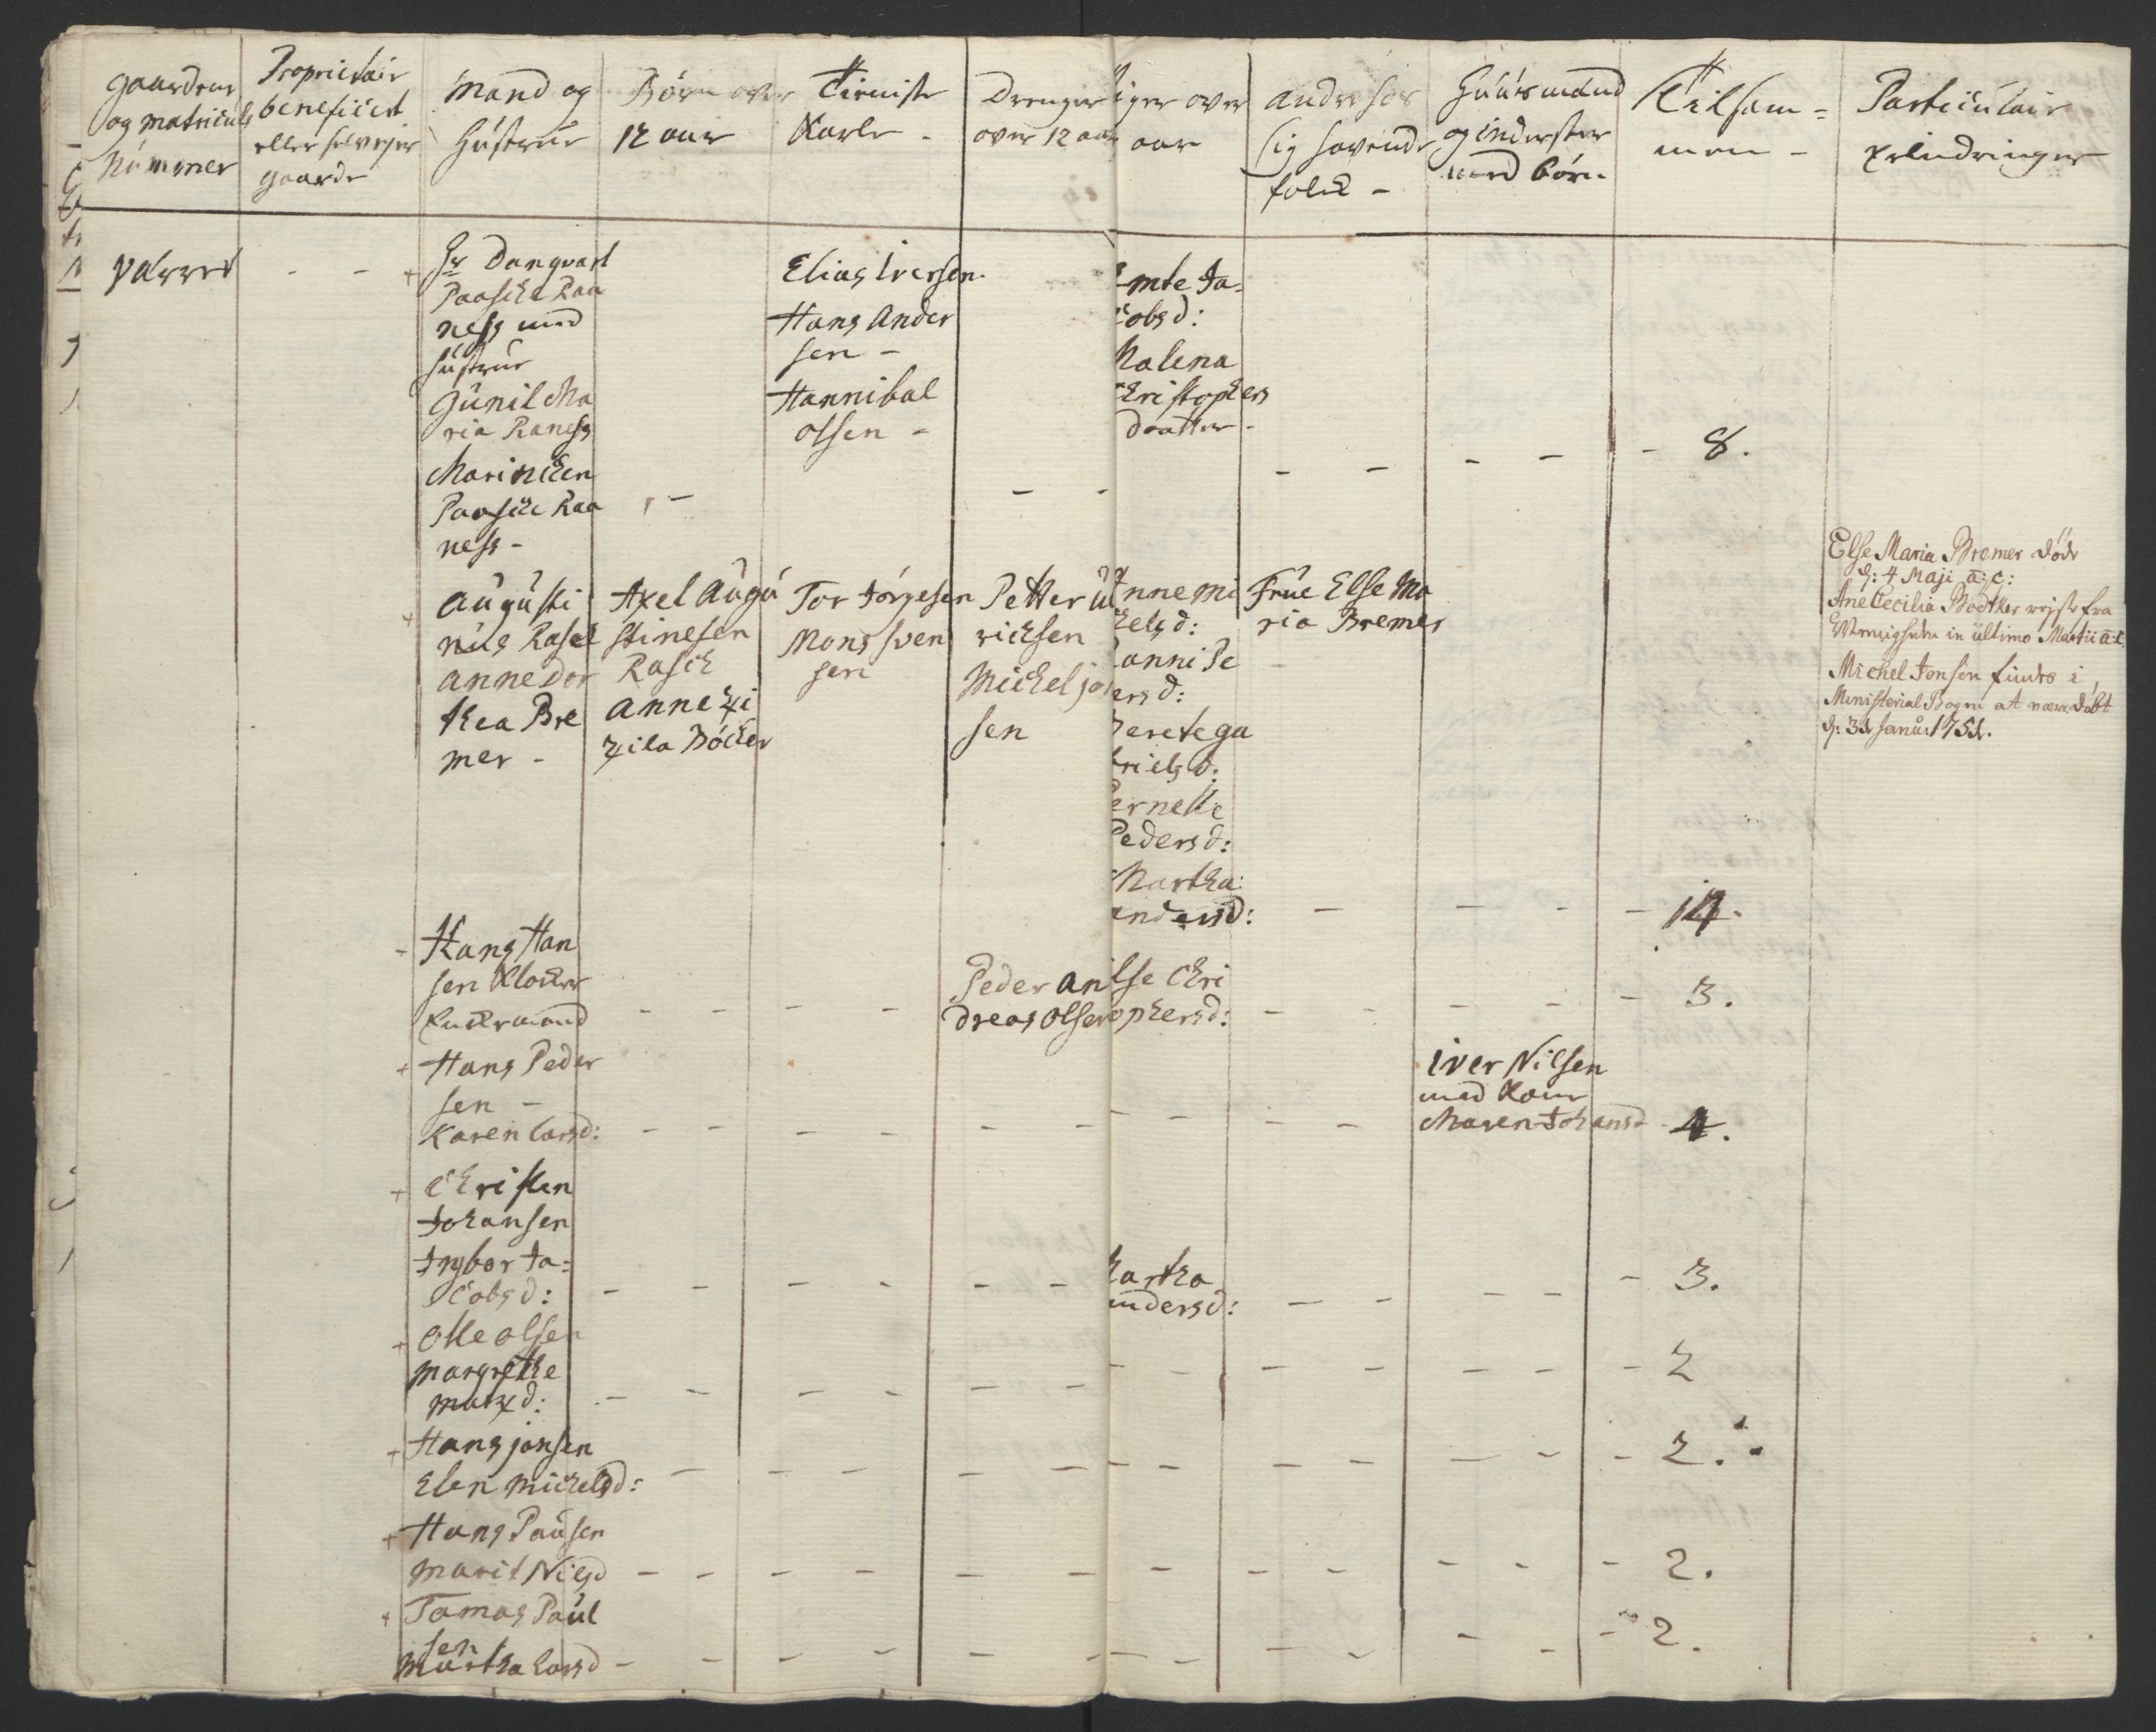 Gaardens
og matriculs
Nummer
Proprietair
beneficert
eller selvejer
gaarde
Mand og
Hustrue
Børn over
12 aar
Tieniste
Karle -
Drenger
over 12 aar
iger over
aar
andre for
sig havende
folck -
Huusmænd
og inderster
med børn
Tilsam=
men -
Particulair
Erindringer
Værret - -
Hr Danqvart
Paasche Raa
ness med
Hustrue
Gunil Ma
ria Raness
Marinichen
Paasche Raa
ness -
Elias Iversen
Hans Ander
sen -
Hannibal
Olsen -
mte Ja-
cobsd:
Malena
Christophers
daatter -
8.
Augusti
nus Rasch
Anne Dor
thea Bre
mer -
Axel Augu
stinesen
Rasch
Anne Zi
zila Böcker
Tor Jörgesen
Mons Sven
sen
Petter Ul
richsen
Michel jon
sen
Anne Mi
chelsd:
anni Pe
ersd:
Berete Ga
brielsd:
Pernelle
Pedersd:
Martha
andersd:
Frue Else Ma
ria Bremer
14.
Else Maria Bremer døde
d: 4 Maji a: c:
Ane Cecilia Bødtker rejste fra
in ultimo Martii a: c
Michel Jonsen findes i
Ministerial Bogen at være døbt
d: 31 Janu: 1751.
Hans Han
sen Klocker
Enckemand
Peder An
dreas Olsen
lse Chri
ophersd:
3.
Hans Peder
sen -
Karen Larsd:
Iver Nilsen
med Kone
Maren Johansd
4.
Christen
Johansen
Ingbor Ja=
cobsd:
Martha
andersd:
3.
Olle Olsen
Margrethe
Marxd:
2
Hans Jonsen
Elen Michelsd:
2.
Hans Paulsen
Marit Nilsd
2.
Tomas Paul
sen
Martha Larsd
2.